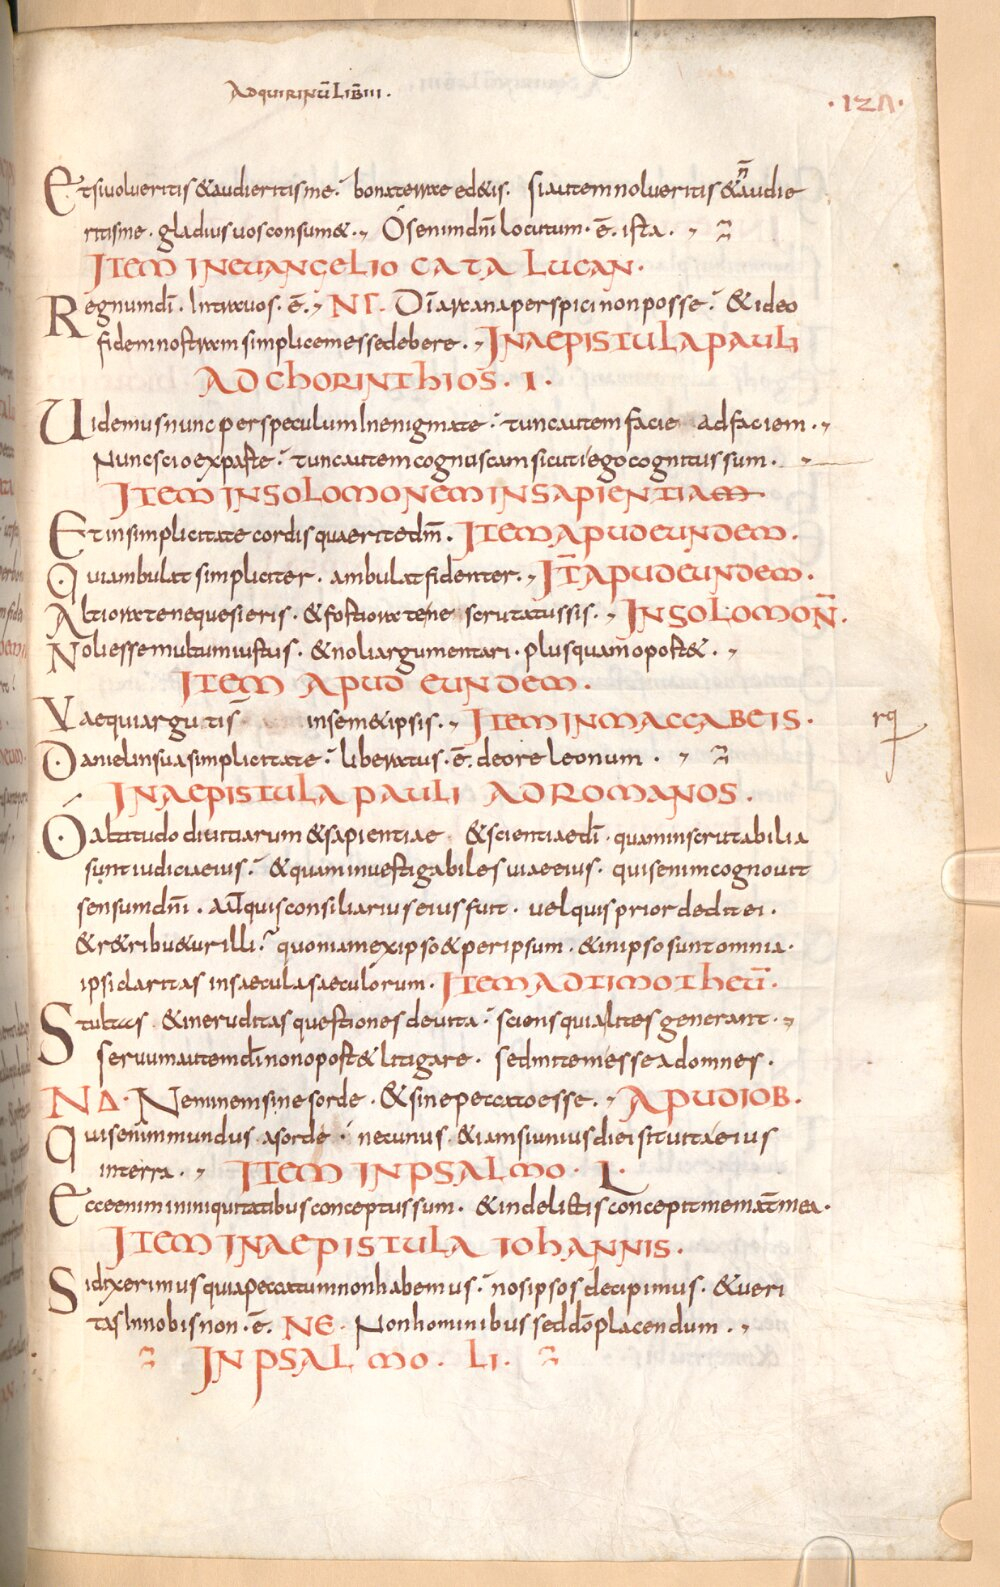 Adquirinū Lib̄ III.
·127·
Etsiuolueritis &audieritisme. bonaterrae ed&is. siautemnolueritis &n̄audie
ritisme. gladiusuosconsum&. Osenimdn̄i locutum. ē. ista.
ITEM INEUANGELIO CATA LUCAN.
Regnumdī. Intrauos. ē. NI. Dīarcanaperspicinonposse. &ideo
fidemnostramsimplicemessedebere. INAEPISTULAPAULI
ADCHORINTHIOS. I.
Uidemusnunc perspeculumInenigmate. tuncautemfacie adfaciem.
Nuncscioexparte. tuncautemcognuscamsicutiegocognitussum.
ITEM INSOLOMONEMINSAPIENTIAM
Etinsimplicitatecordisquaeritedm̄. ITEMAPUDEUNDEM.
Quiambulatsimpliciter. ambulatfidenter. IT̄APUDEUNDEM.
Altioratenequesieris. &fortioratene scrutatussis. INSOLOMON̄.
Noliessemultumiustus. &noliargumentari. plusquamoport&.
ITEM APUD EUNDEM.
Vaequiargutis insem&ipsis. ITEMINMACCABEIS.
rq
Danielinsuasimplicitate. liberatus. ē. deoreleonum.
INAEPISTULAPAULI ADROMANOS.
Oaltitudo diuitiarum &sapientiae &scientiaedī. quaminscrutabilia
suntiudiciaeius. &quaminuestigabiles uiaeeius. quisenimcognouit
sensumdn̄i. Autquisconsiliariuseiusfuit. uelquispriordeditei.
&r&ribu&urilli. quoniamexipso&peripsum. &inipsosuntomnia.
ipsiclaritas insaeculasaeculorum. ITEMADTIMOTHEŪ.
Stultas &ineruditasquestionesdeuita. sciensquialitesgenerant.
seruumautemdīnonoport&litigare. sedmitemesseadomnes.
NΔ. Neminemsinesorde. &sinepeccatoesse. APUDIOB.
Quisenimmundus asorde. necunus &iamsiuniusdieisituitaeius
interra. ITEM INPSALMO. L.
Ecceeniminiquitatibusconceptussum. &indelictisconcepitmematm̄ea.
ITEMINAEPISTULA IOHANNIS.
Sidixerimusquiapeccatumnonhabemus. nosipsosdecipimus. &ueri
tasInnobisnon. ē. NE. Nonhominibusseddōplacendum.
INPSALMO. LI.